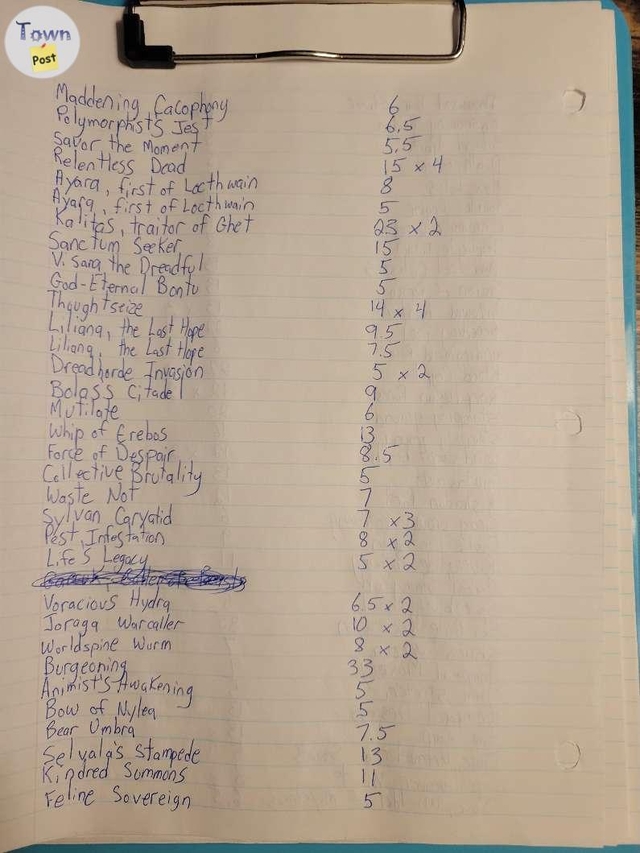 Town
Post
Maddening Cacophony 6
Polymorphist's Jest 6.5
Savor the Moment 5.5
Relentless Dead 15 x 4
Ayara, first of Locthwain 8
Ayara, first of Locthwain 5
Kalitas, traitor of Ghet 23 x 2
Sanctum Seeker 15
V.Sara, the Dreadful 5
God-Eternal Bontu 5
Thoughtseize 14 x 4
Liliana, the Last Hope 9.5
Liliana, the Last Hope 7.5
Dreadhorde Invasion 5 x 2
Bolass Citadel 9
Mutilate 6
Whip of Erebos 13
Force of Despair 8.5
Collective Brutality 5
Waste Not 7
Sylvan Caryatid 7 x3
Pest Infestation 8 x 2
Life's Legacy 5 x 2
Voracious Hydra 6.5 x 2
Joraga Warcaller 10 x 2
Worldspine Wurm 8 x 2
Burgeoning 33
Animist's Awakening 5
Bow of Nylea 5
Bear Umbra 7.5
Selvala's Stampede 13
Kindred Summons 11
Feline Sovereign 5